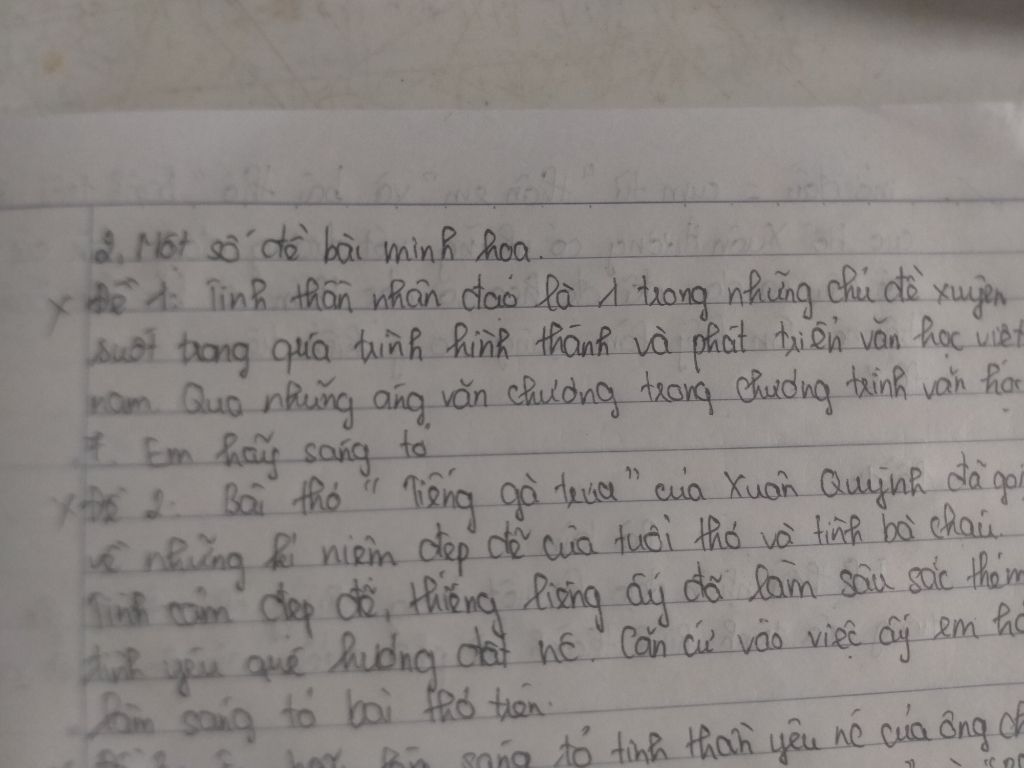 2. Một số đề bài minh họa.
x Đề 1: Tinh thần nhân đạo là 1 trong những chủ đề xuyên
suốt trong quá trình hình thành và phát triển văn học việt
nam. Qua những áng văn chương trong chương trình văn học
7. Em hãy sáng tỏ
x Đề 2: Bài thơ "Tiếng gà trưa" của Xuân Quỳnh đã gợi
về những kỉ niệm đẹp đẽ của tuổi thơ và tình bà cháu.
Tình cảm đẹp đẽ, thiêng liêng ấy đã làm sâu sắc thêm
tình yêu quê hương đất nc. Căn cứ vào việc ấy em
làm sáng tỏ bài thơ trên.
sáng tỏ tinh thần yêu nc của ông